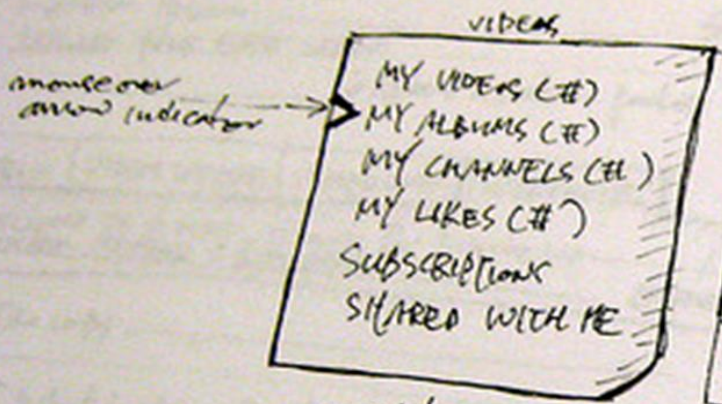 VIDEOS
mouse over
arrow indicator
MY VIDEOS (#)
MY ALBUMS (#)
MY CHANNELS (#)
MY LIKES (#)
SUBSCRIPTIONS
SHARED WITH ME